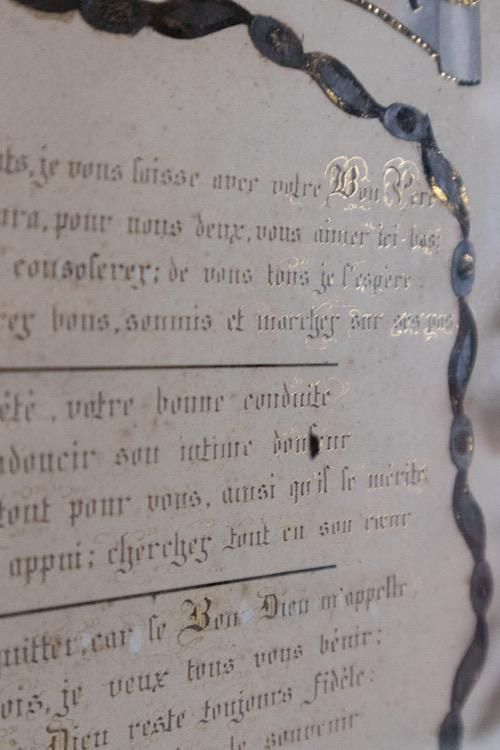 ts, je vous laisse avec votre Bon Père
ra, pour nous deux, vous aimer ici-bas;
consolerez; de vous tous je l'espère
rez bons, soumis et marchez sur ses pas
été, votre bonne conduite
adoucir son intime douleur
tout pour vous, ainsi qu'il le mérite
appui; cherchez tout en son cœur
uitter, car le Bon Dieu m'appelle
ois, je veux tous vous bénir;
Dieu reste toujours fidèle:
le souvenir